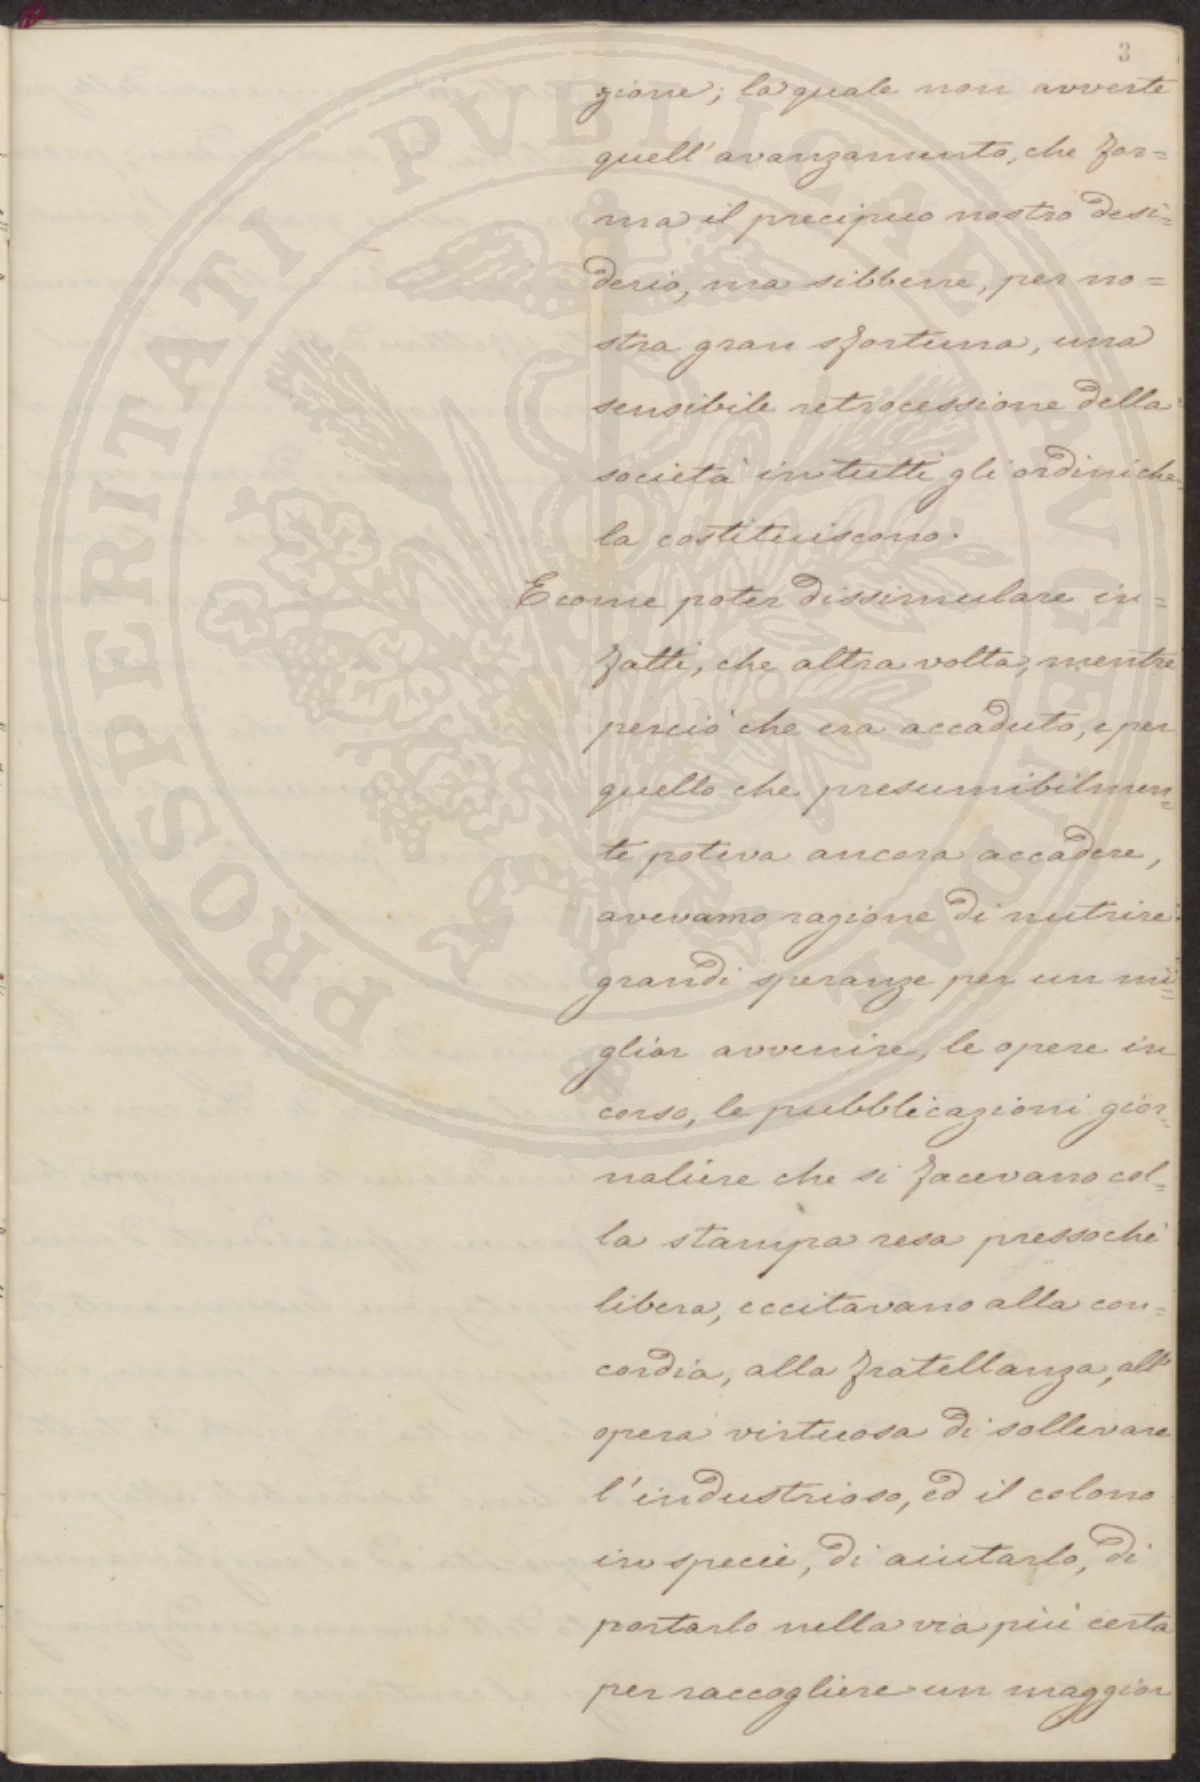 3
zione; la quale non avverte
quell'avanzamento, che for=
ma il precipuo nostro desi=
derio, ma sibbene, per no=
stra gran sfortuna, una
sensibile retrocessione della
società in tutti gli ordini che
la costituiscono.
E come poter dissimulare in=
fatti, che altra volta, mentre
perciò che era accaduto, e per
quello che presumibilmen=
te poteva ancora accadere,
avevamo ragione di nutrire
grandi speranze per un mi=
glior avvenire, le opere in
corso, le pubblicazioni gior=
naliere che si facevano col=
la stampa resa pressochè
libera, eccitavano alla con=
cordia, alla fratellanza, all'
opera virtuosa di sollevare
l'industrioso, ed il colono
in specie, di aiutarlo, di
portarlo nella via più certa
per raccogliere un maggior
PROSPERITATI PVBLICAE AVGENDAE